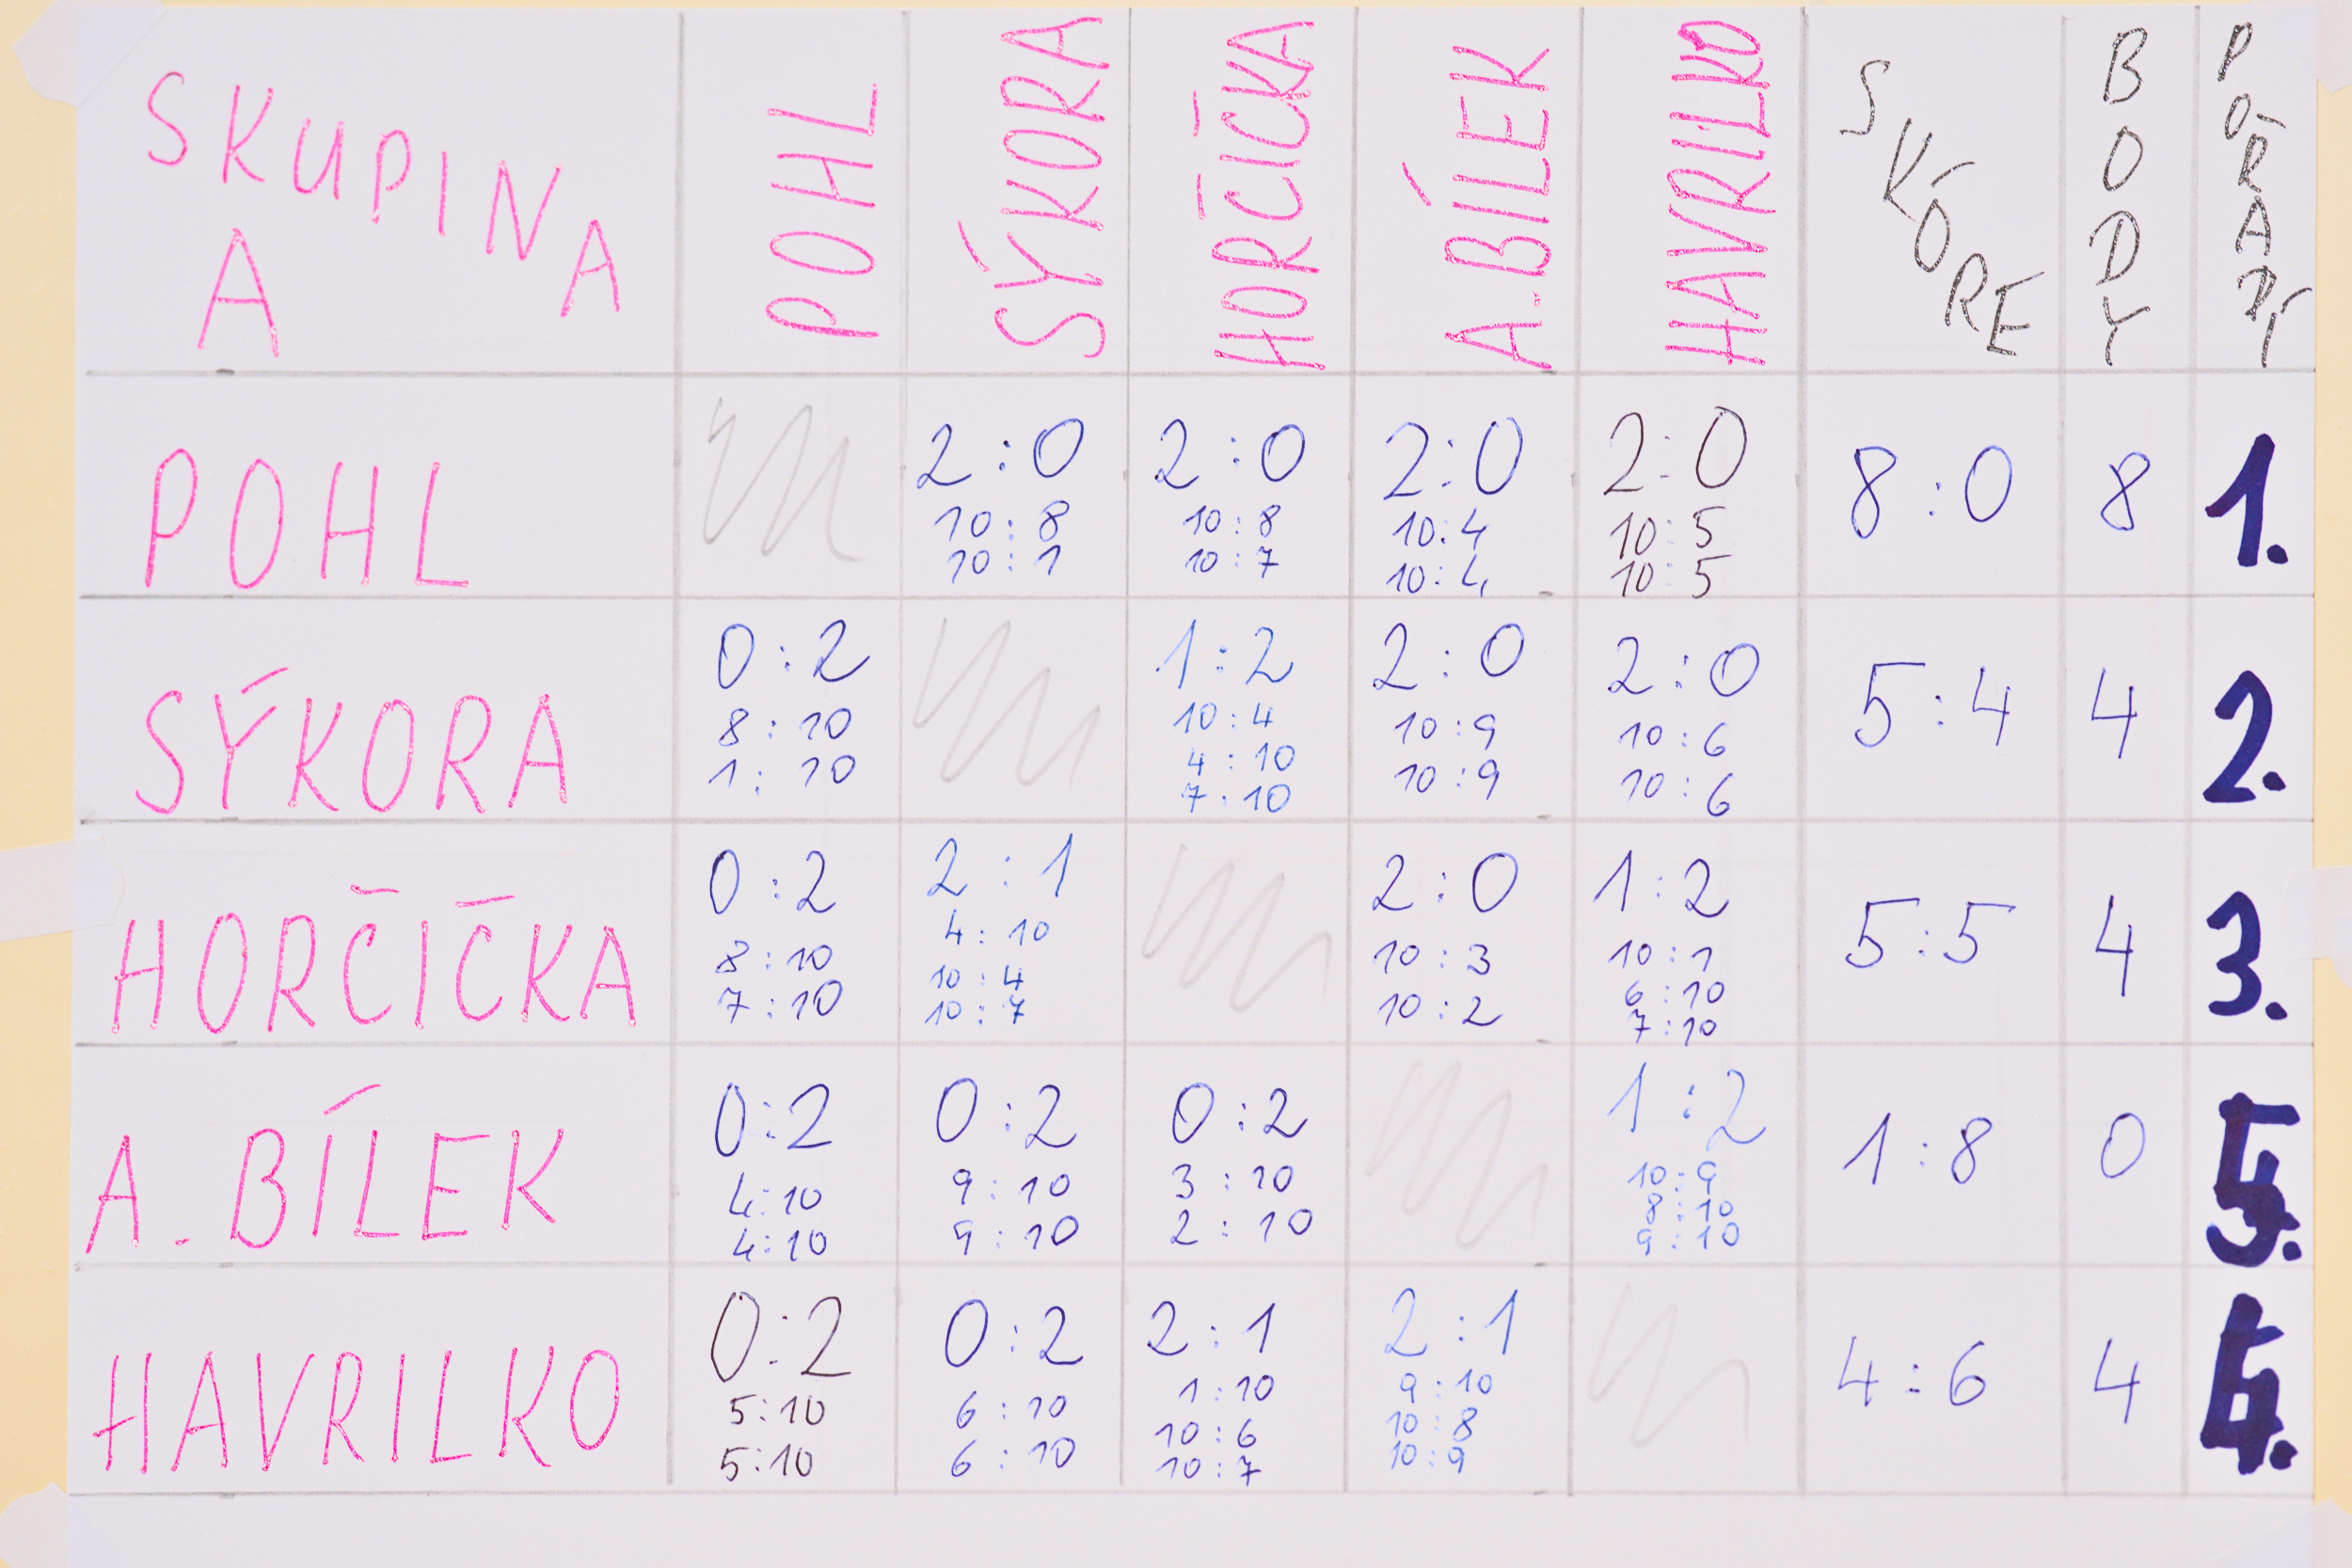 SKUPINA A
POHL
SÝKORA
HORČIČKA
A.BÍLEK
HAVRILKO
SKÓRE
BODY
POŘADÍ
POHL 2:0 2:0 2:0 2:0 8:0 8 1.
10:8 10:8 10:4 10:5
10:1 10:7 10:4 10:5
SÝKORA 0:2 1:2 2:0 2:0 5:4 4 2.
8:10 10:4 10:9 10:6
1:10 4:10 10:9 10:6
7:10
HORČIČKA 0:2 2:1 2:0 1:2 5:5 4 3.
8:10 4:10 10:3 10:1
7:10 10:4 10:2 6:10
10:7 7:10
A. BÍLEK 0:2 0:2 0:2 1:2 1:8 0 5.
4:10 9:10 3:10 10:9
4:10 9:10 2:10 8:10
9:10
HAVRILKO 0:2 0:2 2:1 2:1 4:6 4 4.
5:10 6:10 1:10 9:10
5:10 6:10 10:6 10:8
10:7 10:9